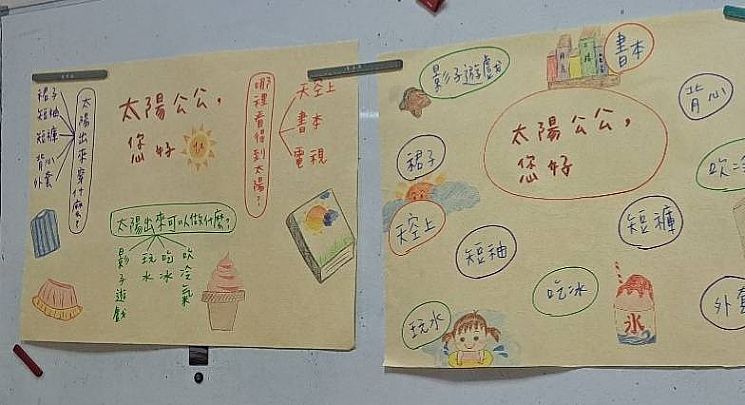 太陽公公，
您好
太陽出來穿什麼？
裙子
短袖
短褲
背心
外套
哪裡看得到太陽？
天空上
書本
電視
太陽出來可以做什麼？
影子遊戲
玩水
吃冰
吹冷氣
太陽公公，
您好
影子遊戲
書本
背心
裙子
吹冷
天空上
短袖
短褲
吃冰
玩水
冰
外套